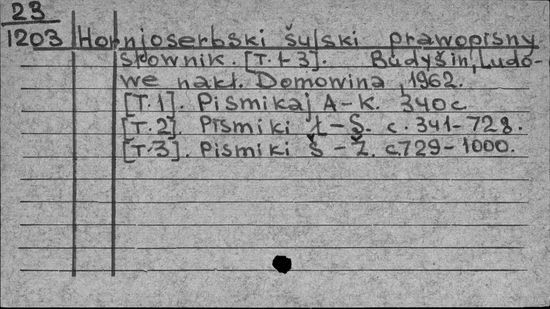 23
1203 Hornjoserbski šulski prawopisny
słownik. [T. 1-3]. Budyšin, Ludo-
we nakł. Domowina, 1962.
[T. 1]. Pismikaj A-K. 340 c.
[T. 2]. Pismiki Ł-S. c. 341-728.
[T. 3]. Pismiki Š-Ž. c. 729-1000.